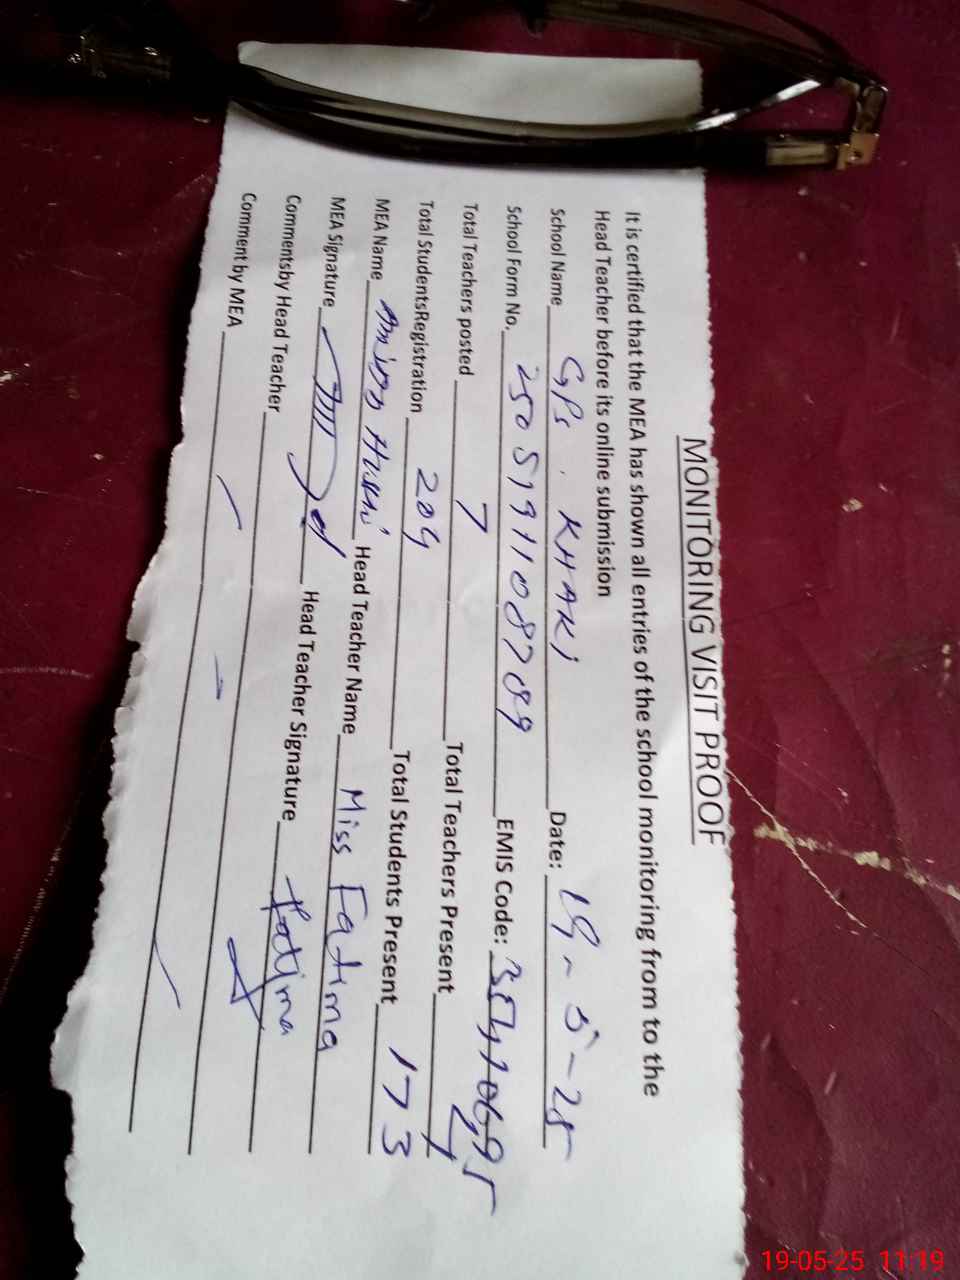 MONITORING VISIT PROOF
It is certified that the MEA has shown all entries of the school monitoring from to the
Head Teacher before its online submission
School Name GPS. KHAKI Date: 19-5-25
School Form No. 250519911087089 EMIS Code:
Total Teachers posted 7 Total Teachers Present
Total StudentsRegistration 209 Total Students Present 173
MEA Name Head Teacher Name Miss Fatima
MEA Signature Head Teacher Signature Fatima
Commentsby Head Teacher
Comment by MEA
19-05-25 11:19